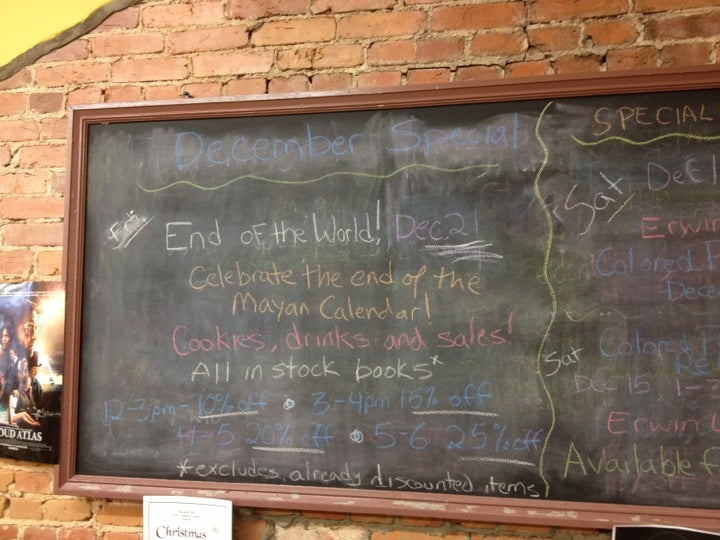 December Specials
Fri.
End of the World! Dec. 21
Celebrate the end of the
Mayan Calendar!
Cookies, drinks and sales!
All in stock books*
12-3pm - 10% off • 3-4pm 15% off
4-5 20% off • 5-6 25% off
*excludes already discounted items
SPECIAL
Sat
Dec 1
Erwin
Colored P
Dece
Sat
Colored P
Re
Dec 15, 1-
Erwin L
Available f
OUD ATLAS
Christmas